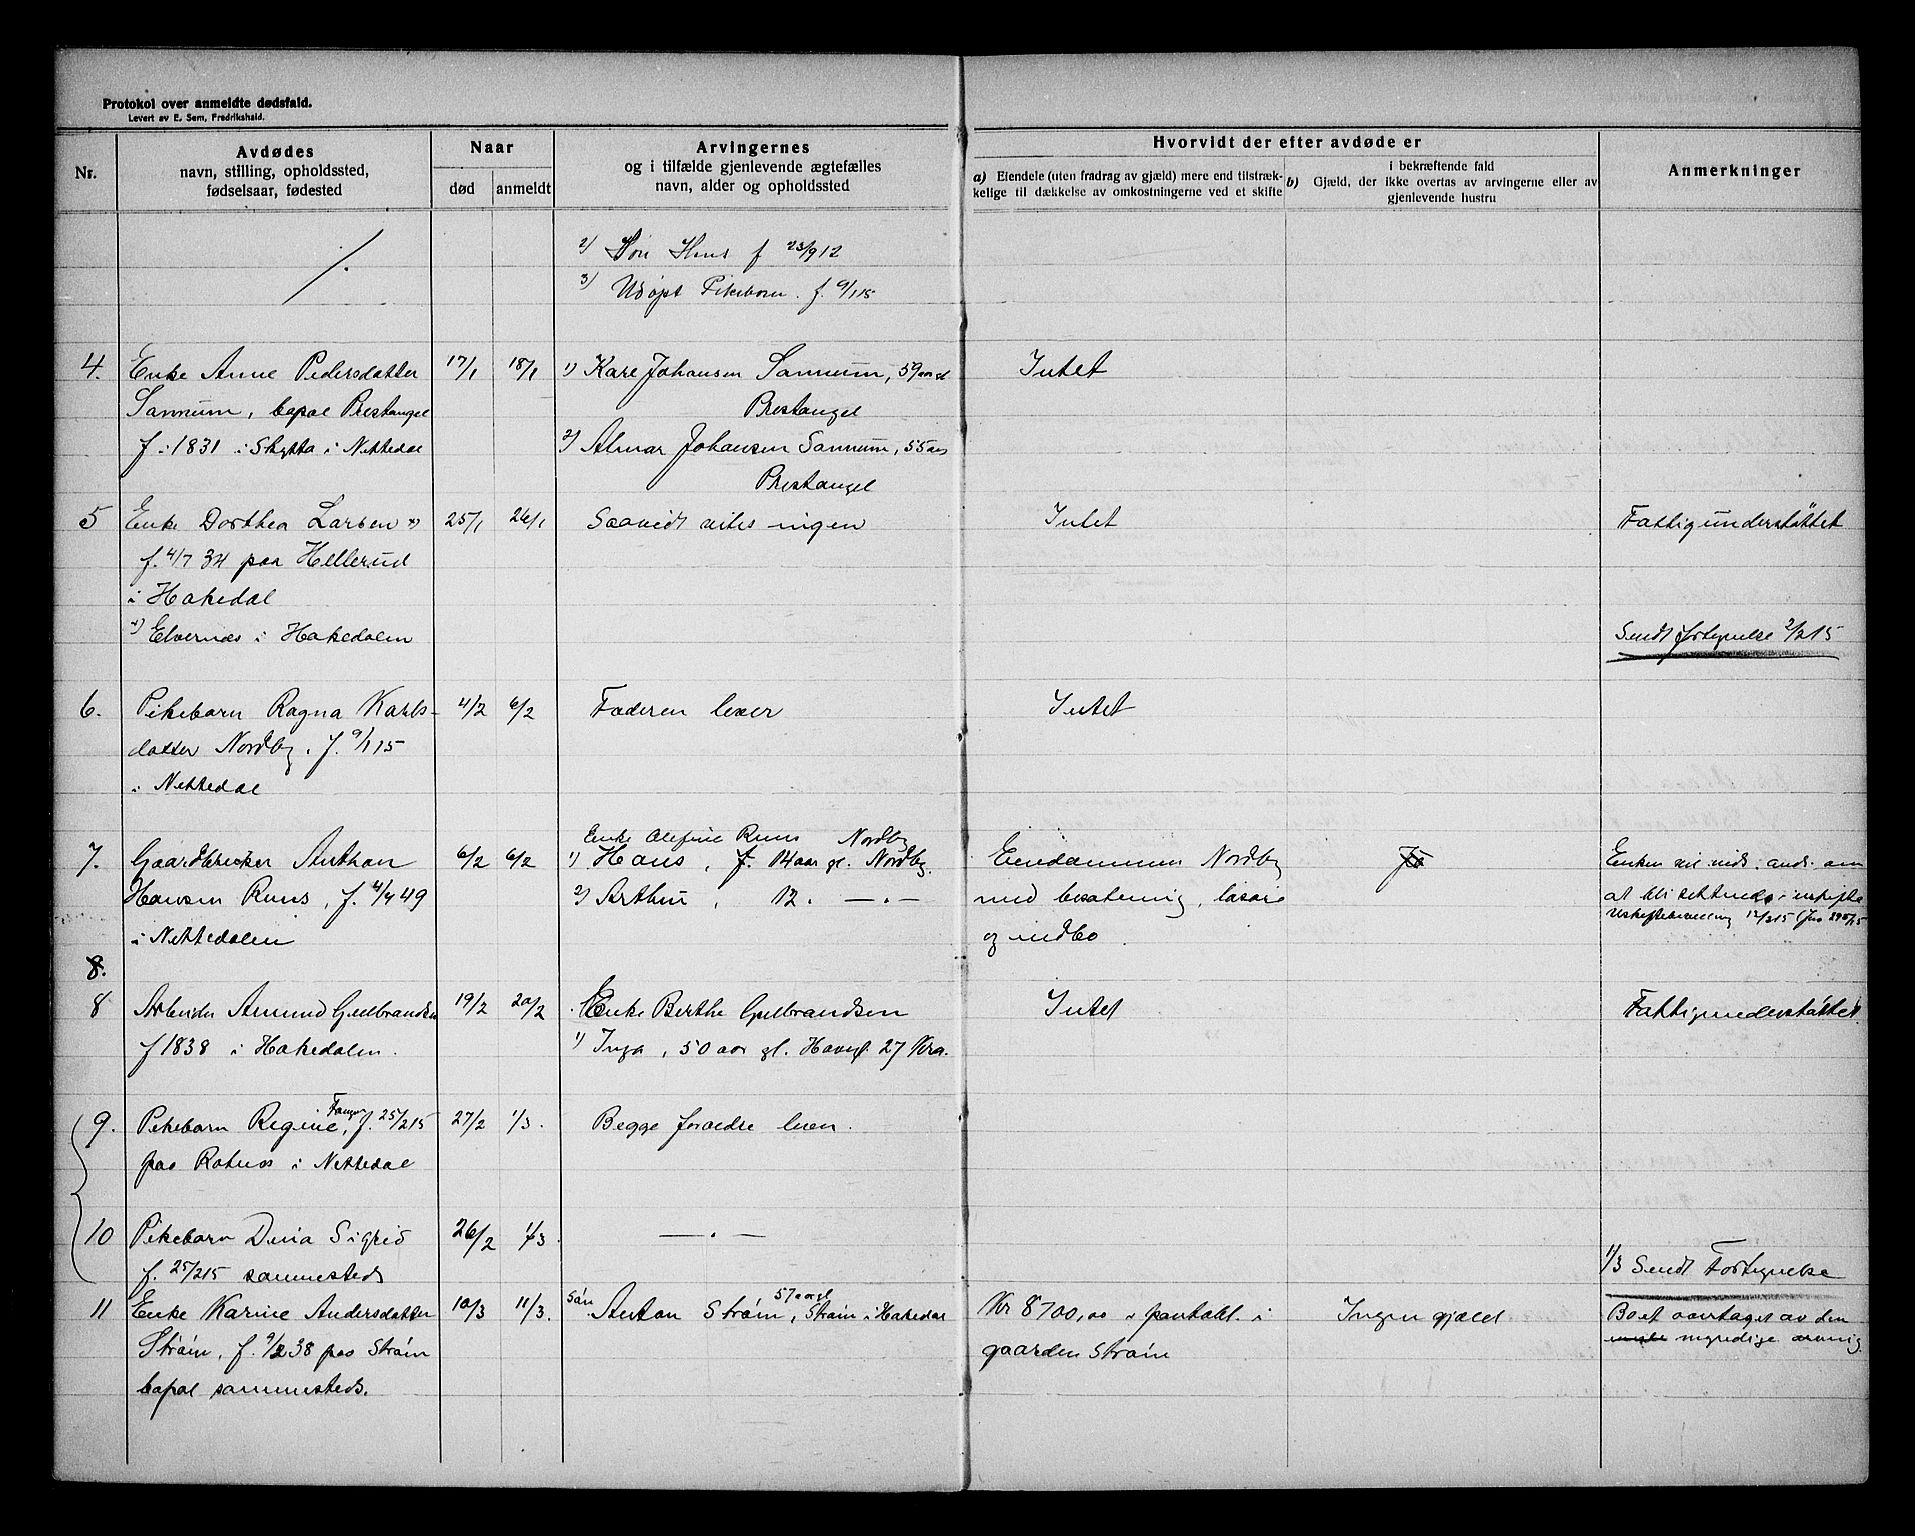 Protokol over anmeldte dødsfald.
Levert av E. Sem, Fredrikshald.
Nr.
Avdødes
navn, stilling, opholdssted,
fødselsaar, fødested
Naar
død
anmeldt
Arvingernes
og i tilfælde gjenlevende ægtefælles
navn, alder og opholdssted
Hvorvidt der efter avdøde er
a) Eiendele (uten fradrag av gjæld) mere end tilstræk-
kelige til dækkelse av omkostningerne ved et skifte
i bekræftende fald
b) Gjæld, der ikke overtas av arvingerne eller av
gjenlevende hustru
Anmerkninger
2) Søn Hans f 23/9 12
3) Udøpt Pikebarn. f. 9/1 15
4. Enke Anne Pedersdatter 17/1 18/1 1) Kare Johansen Sannum, 59 aar Intet
Sannum, bopæl Prestangel Prestangel
f. 1831 i Skytta i Nittedal 2) Almar Johansen Sannum, 55 aar
Prestangel
5 Enke Dorthea Larsen x) 25/1 26/1 Saavidt vites ingen Intet Fattigunderstøttet
f. 4/7 34 paa Hellerud
i Hakedal
x) Elvernæs i Hakedalen Sendt fortegnelse 2/2 15
6. Pikebarn Ragna Karls- 4/2 6/2 Faderen lever Intet
datter Nordby. f. 9/1 15
i Nittedal
Enke Olefine Ruus Nordby
7. Gaardbruker Anthon 6/2 6/2 1) Hans, f. 14 aar gl. Nordby. Eiendommen Nordby Ja Enken vil
Hansen Ruus, f. 4/4 49 2) Arthur, 12. — . — med besætning, løsøre at bli i uskifte
Uskiftebevilling 12/2 15
i Nittedalen og indbo.
8.
8 Arbeider Amund Gulbrandsen 19/2 20/2 Enke Berthe Gulbrandsen Intet Fattigunderstøttet
f 1838 i Hakedalen. 1) Inga, 50 aar gl. 27 Kra.
9. Pikebarn Regine, f. 25/2 15 27/2 1/3. Begge forældre lever.
paa Rotnes i Nittedal
10 Pikebarn Dina Sigrid 26/2 1/3 — . —
f. 25/2 15 sammesteds 1/3 Sendt Fortegnelse
11 Enke Karine Andersdatter 10/3 11/3. Søn Anton Strøm, 57 aar gl Strøm i Hakedal Kr 8700,00 i pantobl. i Ingen gjæld Boet overtaget av den
Strøm, f. 9/2 38 paa Strøm gaarden Strøm eneste myndige arving
bopæl sammesteds.